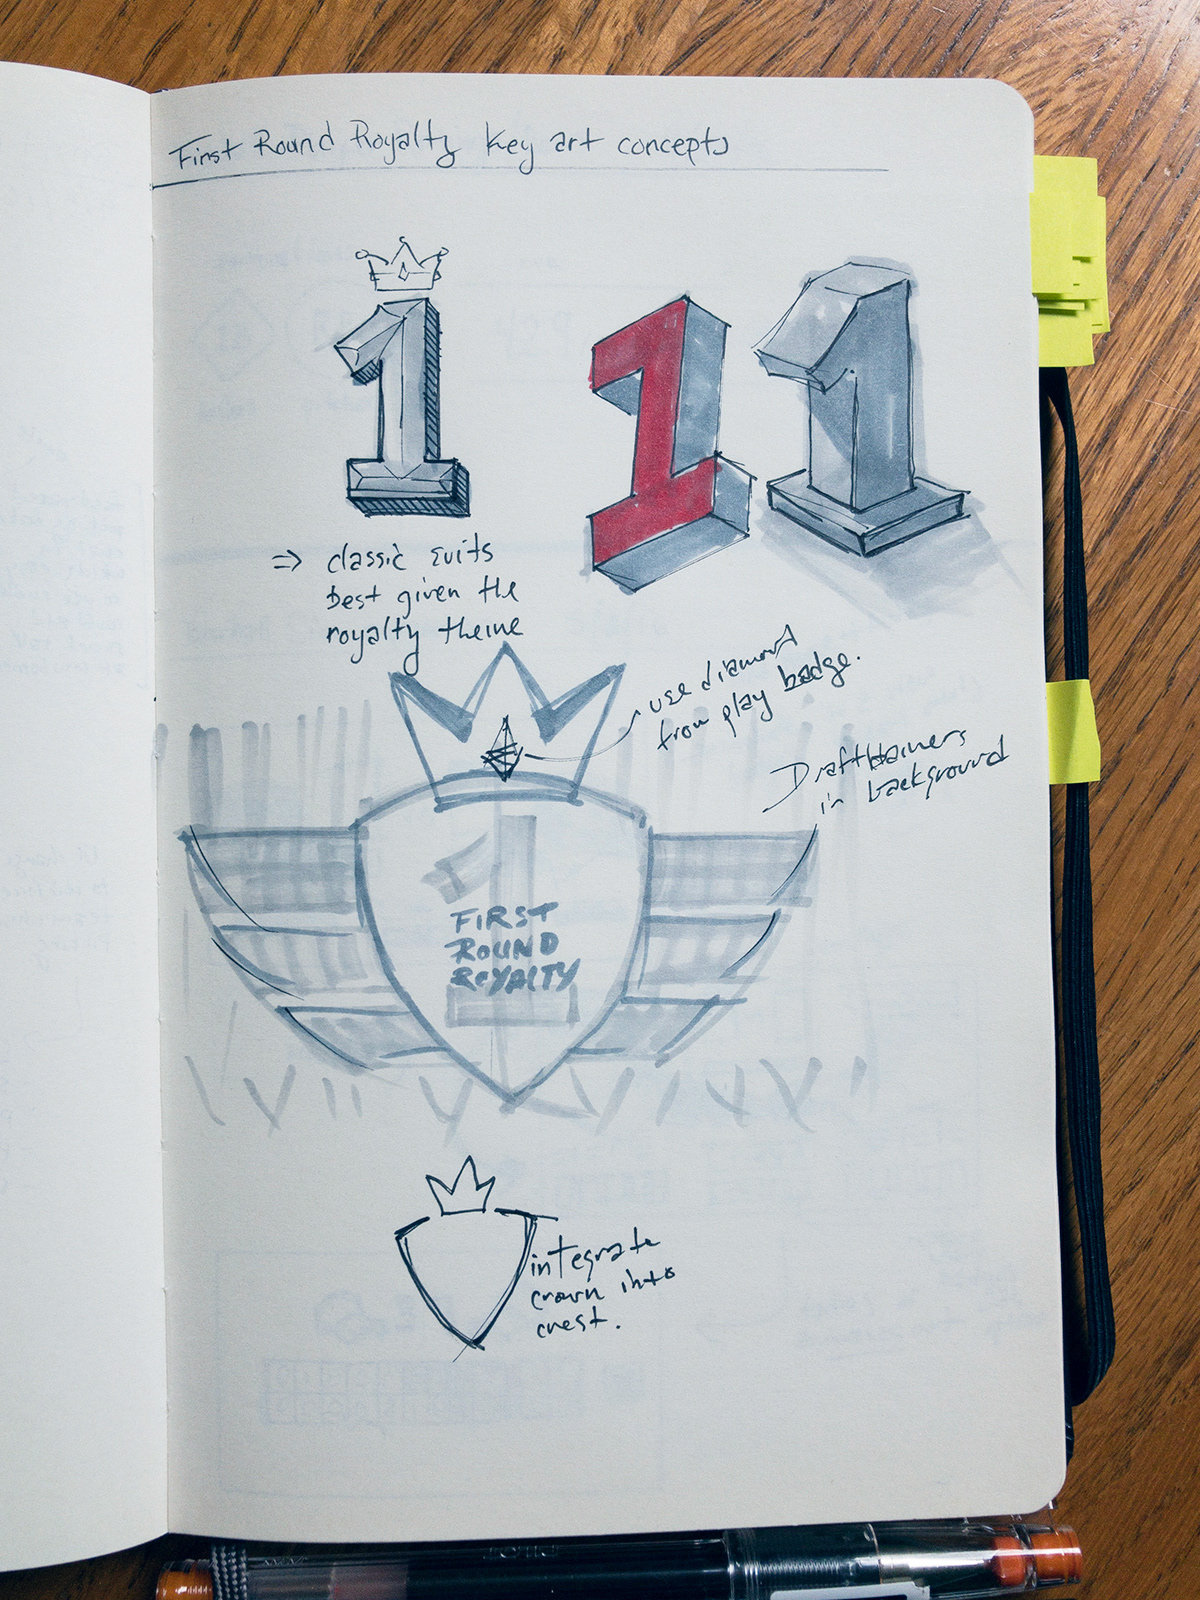 First Round Royalty Key art concepts
1
1
1
⇒ classic suits
best given the
royalty theme
use diamond
from play badge.
Draft
in background
1
FIRST
ROUND
ROYALTY
integrate
crown into
crest.
PILOT